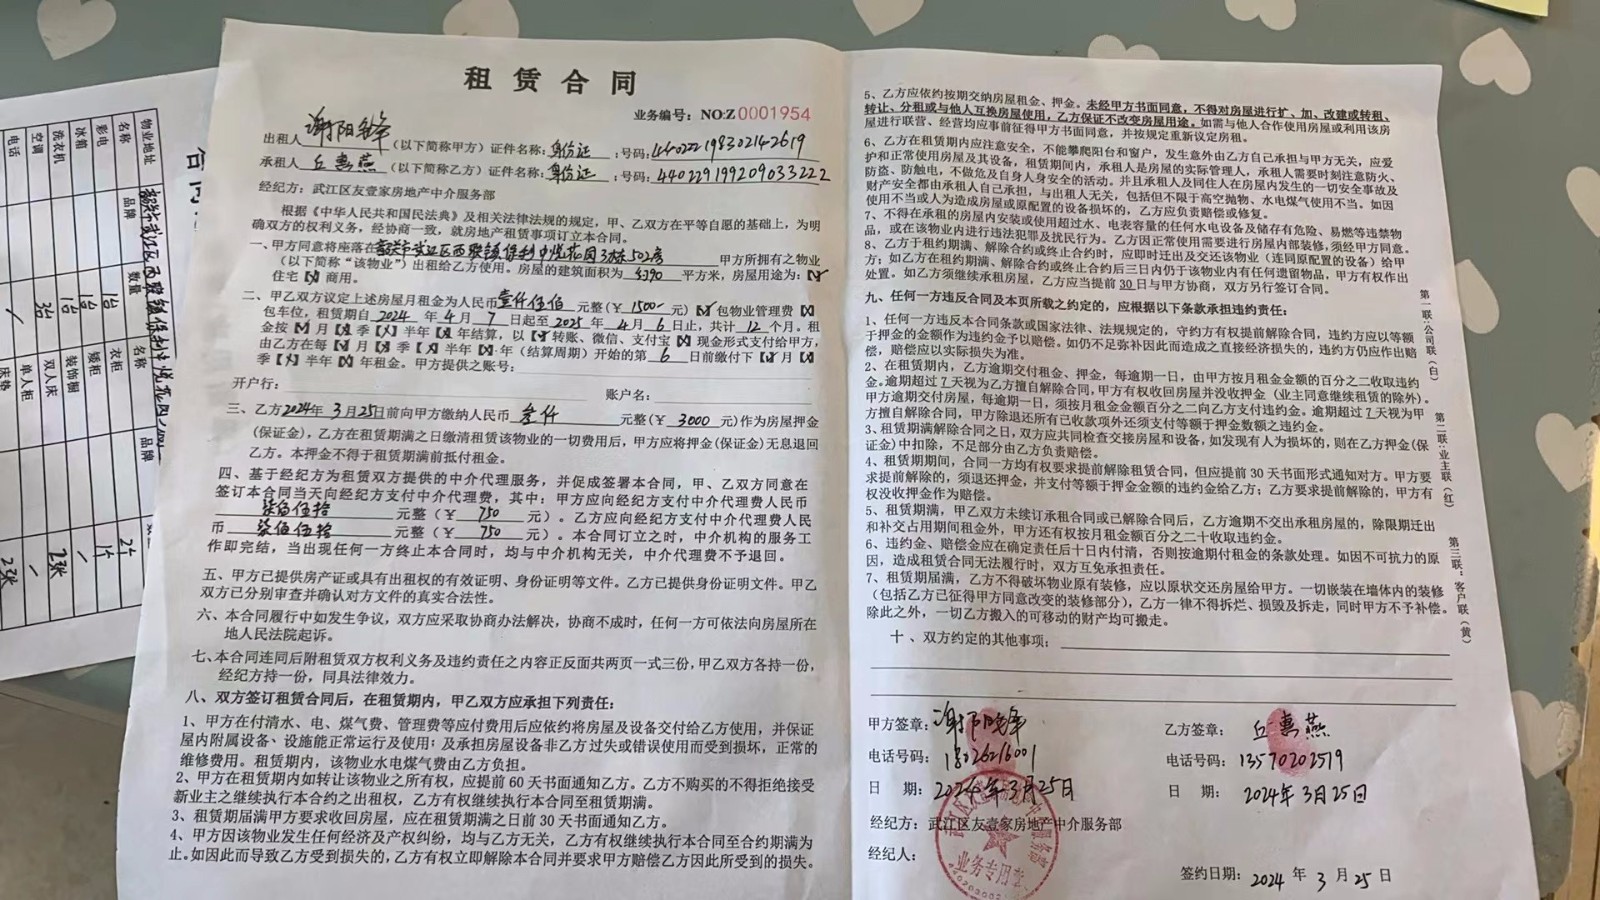 租赁合同
业务编号：NO:Z 0001954
出租人 谢阳华 （以下简称甲方）证件名称：身份证 ：号码：440222198302142619
承租人 丘惠燕 （以下简称乙方）证件名称：身份证 ：号码：440229199209033222
经纪方：武江区友壹家房地产中介服务部
根据《中华人民共和国民法典》及相关法律法规的规定，甲、乙双方在平等自愿的基础上，为明
确双方的权利义务，经协商一致，就房地产租赁事项订立本合同。
一、甲方同意将座落在韶关市武江区西联镇保利中悦花园3栋502房 甲方所拥有之物业
（以下简称“该物业”）出租给乙方使用。房屋的建筑面积为 平方米，房屋用途为：【√】
住宅【 】商用。
二、甲乙双方议定上述房屋月租金为人民币 壹仟伍佰 元整（￥ 1500- 元）【√】包物业管理费【 】
包车位，租赁期自 2024 年 4 月 7 日起至 2025 年 4 月 6 日止，共计 12 个月。租
金按【√】月【X】季【X】半年【X】年结算，以【√】转账、微信、支付宝【 】现金形式支付给甲方，
由乙方在每【√】月【X】季【X】半年【X】年（结算周期）开始的第 6 日前缴付下【√】月【X】
季【X】半年【X】年租金。甲方提供之账号：
开户行： 账户名：
三、乙方2024年3月25日前向甲方缴纳人民币 叁仟 元整（￥ 3000 元）作为房屋押金
（保证金），乙方在租赁期满之日缴清租赁该物业的一切费用后，甲方应将押金（保证金）无息退回
乙方。本押金不得于租期满前抵付租金。
四、基于经纪方为租赁双方提供的中介代理服务，并促成签署本合同，甲、乙双方同意在
签订本合同当天向经纪方支付中介代理费，其中：甲方应向经纪方支付中介代理费人民币
柒佰伍拾 元整（￥ 750 元）。乙方应向经纪方支付中介代理费人民
币 柒佰伍拾 元整（￥ 750 元）。本合同订立之时，中介机构的服务工
作即完结，当出现任何一方终止本合同时，均与中介机构无关，中介代理费不予退回。
五、甲方已提供房产证或具有出租权的有效证明、身份证明等文件。乙方已提供身份证明文件。甲乙
双方已分别审查并确认对方文件的真实合法性。
六、本合同履行中如发生争议，双方应采取协商办法解决，协商不成时，任何一方可依法向房屋所在
地人民法院起诉。
七、本合同连同后附租赁双方权利义务及违约责任之内容正反面共两页一式三份，甲乙双方各持一份，
经纪方持一份，同具法律效力。
八、双方签订租赁合同后，在租赁期内，甲乙双方应承担下列责任：
1、甲方在付清水、电、煤气费、管理费等应付费用后应依约将房屋及设备交付给乙方使用，并保证
屋内附属设备、设施能正常运行及使用；及承担房屋设备非乙方过失或错误使用而受到损坏，正常的
维修费用。租赁期内，该物业水电煤气费由乙方负担。
2、甲方在租赁期内如转让该物业之所有权，应提前60天书面通知乙方。乙方不购买的不得拒绝接受
新业主之继续执行本合约之出租权，乙方有权继续执行本合同至租赁期满。
3、租赁期届满甲方要求收回房屋，应在租赁期满之日前30天书面通知乙方。
4、甲方因该物业发生任何经济及产权纠纷，均与乙方无关，乙方有权继续执行本合同至合约期满为
止。如因此而导致乙方受到损失的，乙方有权立即解除本合同并要求甲方赔偿乙方因此所受到的损失。
5、乙方应依约按期交纳房屋租金、押金。未经甲方书面同意，不得对房屋进行扩、加、改建或转租、
转让、分租或与他人互换房屋使用，乙方保证不改变房屋用途。如需与他人合作使用房屋或利用该房
屋进行联营、经营均应事前征得甲方书面同意，并按规定重新议定房租。
6、乙方在租赁期内应注意安全，不能攀爬阳台和窗户，发生意外由乙方自己承担与甲方无关，应爱
护和正常使用房屋及其设备，租赁期间内，承租人是房屋的实际管理人，承租人需要时刻注意防火、
防盗、防触电，不做危及自身人身安全的活动。并且承租人及同住人在房屋内发生的一切安全事故及
财产安全都由承租人自己承担，与出租人无关，包括但不限于高空抛物、水电煤气使用不当。如因
使用不当或人为造成房屋或原配置的设备损坏的，乙方应负责赔偿或修复。
7、不得在承租的房屋内安装或使用超过水、电表容量的任何水电设备及储存有危险、易燃等违禁物
品，或在该物业内进行违法犯罪及扰民行为。乙方因正常使用需要进行房屋内部装修，须经甲方同意。
8、乙方于租约期满、解除合约或终止合约时，应即时迁出及交还该物业（连同原配置的设备）给甲
方；如乙方在租约期满、解除合约或终止合约后三日内仍于该物业内有任何遗留物品，甲方有权作出
处置。如乙方须继续承租房屋，乙方应当提前30日与甲方协商，双方另行签订合同。
九、任何一方违反合同及本页所载之约定的，应根据以下条款承担违约责任：
1、任何一方违反本合同条款或国家法律、法规规定的，守约方有权提前解除合同，违约方应以等额
于押金的金额作为违约金予以赔偿。如仍不足弥补因此而造成之直接经济损失的，违约方仍应作出赔
偿，赔偿应以实际损失为准。
2、在租赁期内，乙方逾期交付租金、押金，每逾期一日，由甲方按月租金金额的百分之二收取违约
金。逾期超过7天视为乙方擅自解除合同，甲方有权收回房屋并没收押金（业主同意继续租赁的除外）。
甲方逾期交付房屋，每逾期一日，须按月租金金额百分之二向乙方支付违约金。逾期超过7天视为甲
方擅自解除合同，甲方除退还所有已收款项外还须支付等额于押金数额之违约金。
3、租赁期满解除合同之日，双方应共同检查交接房屋和设备，如发现有人为损坏的，则在乙方押金（保
证金）中扣除，不足部分由乙方负责赔偿。
4、租赁期期间，合同一方均有权要求提前解除租赁合同，但应提前30天书面形式通知对方。甲方要
求提前解除的，须退还押金，并支付等额于押金金额的违约金给乙方；乙方要求提前解除的，甲方有
权没收押金作为赔偿。
5、租赁期满，甲乙双方未续订承租合同或已解除合同后，乙方逾期不交出承租房屋的，除限期迁出
和补交占用期间租金外，甲方还有权按月租金额百分之二十收取违约金。
6、违约金、赔偿金应在确定责任后十日内付清，否则按逾期付租金的条款处理。如因不可抗力的原
因，造成租赁合同无法履行时，双方互免承担责任。
7、租赁期届满，乙方不得破坏物业原有装修，应以原状交还房屋给甲方。一切嵌装在墙体内的装修
（包括乙方已征得甲方同意改变的装修部分），乙方一律不得拆烂、损毁及拆走，同时甲方不予补偿。
除此之外，一切乙方搬入的可移动的财产均可搬走。
十、双方约定的其他事项：
甲方签章：谢阳华
电话号码：18026216001
日 期：2024年3月25日
经纪方：武江区友壹家房地产中介服务部
经纪人：
业务专用章
乙方签章：丘惠燕
电话号码：13570202519
日 期：2024年3月25日
签约日期：2024 年 3 月 25 日
第一联：公司联（白）
第二联：业主联（红）
第三联：客户联（黄）
物业地址 韶关市武江区西联镇保利中悦花园
名称 品牌 数量 名称 品牌
彩电 1台 衣柜 2个
冰箱 1台 矮柜 1个
洗衣机 1台 装饰橱
空调 3台 双人床 2张
电话 单人柜
床垫 2张